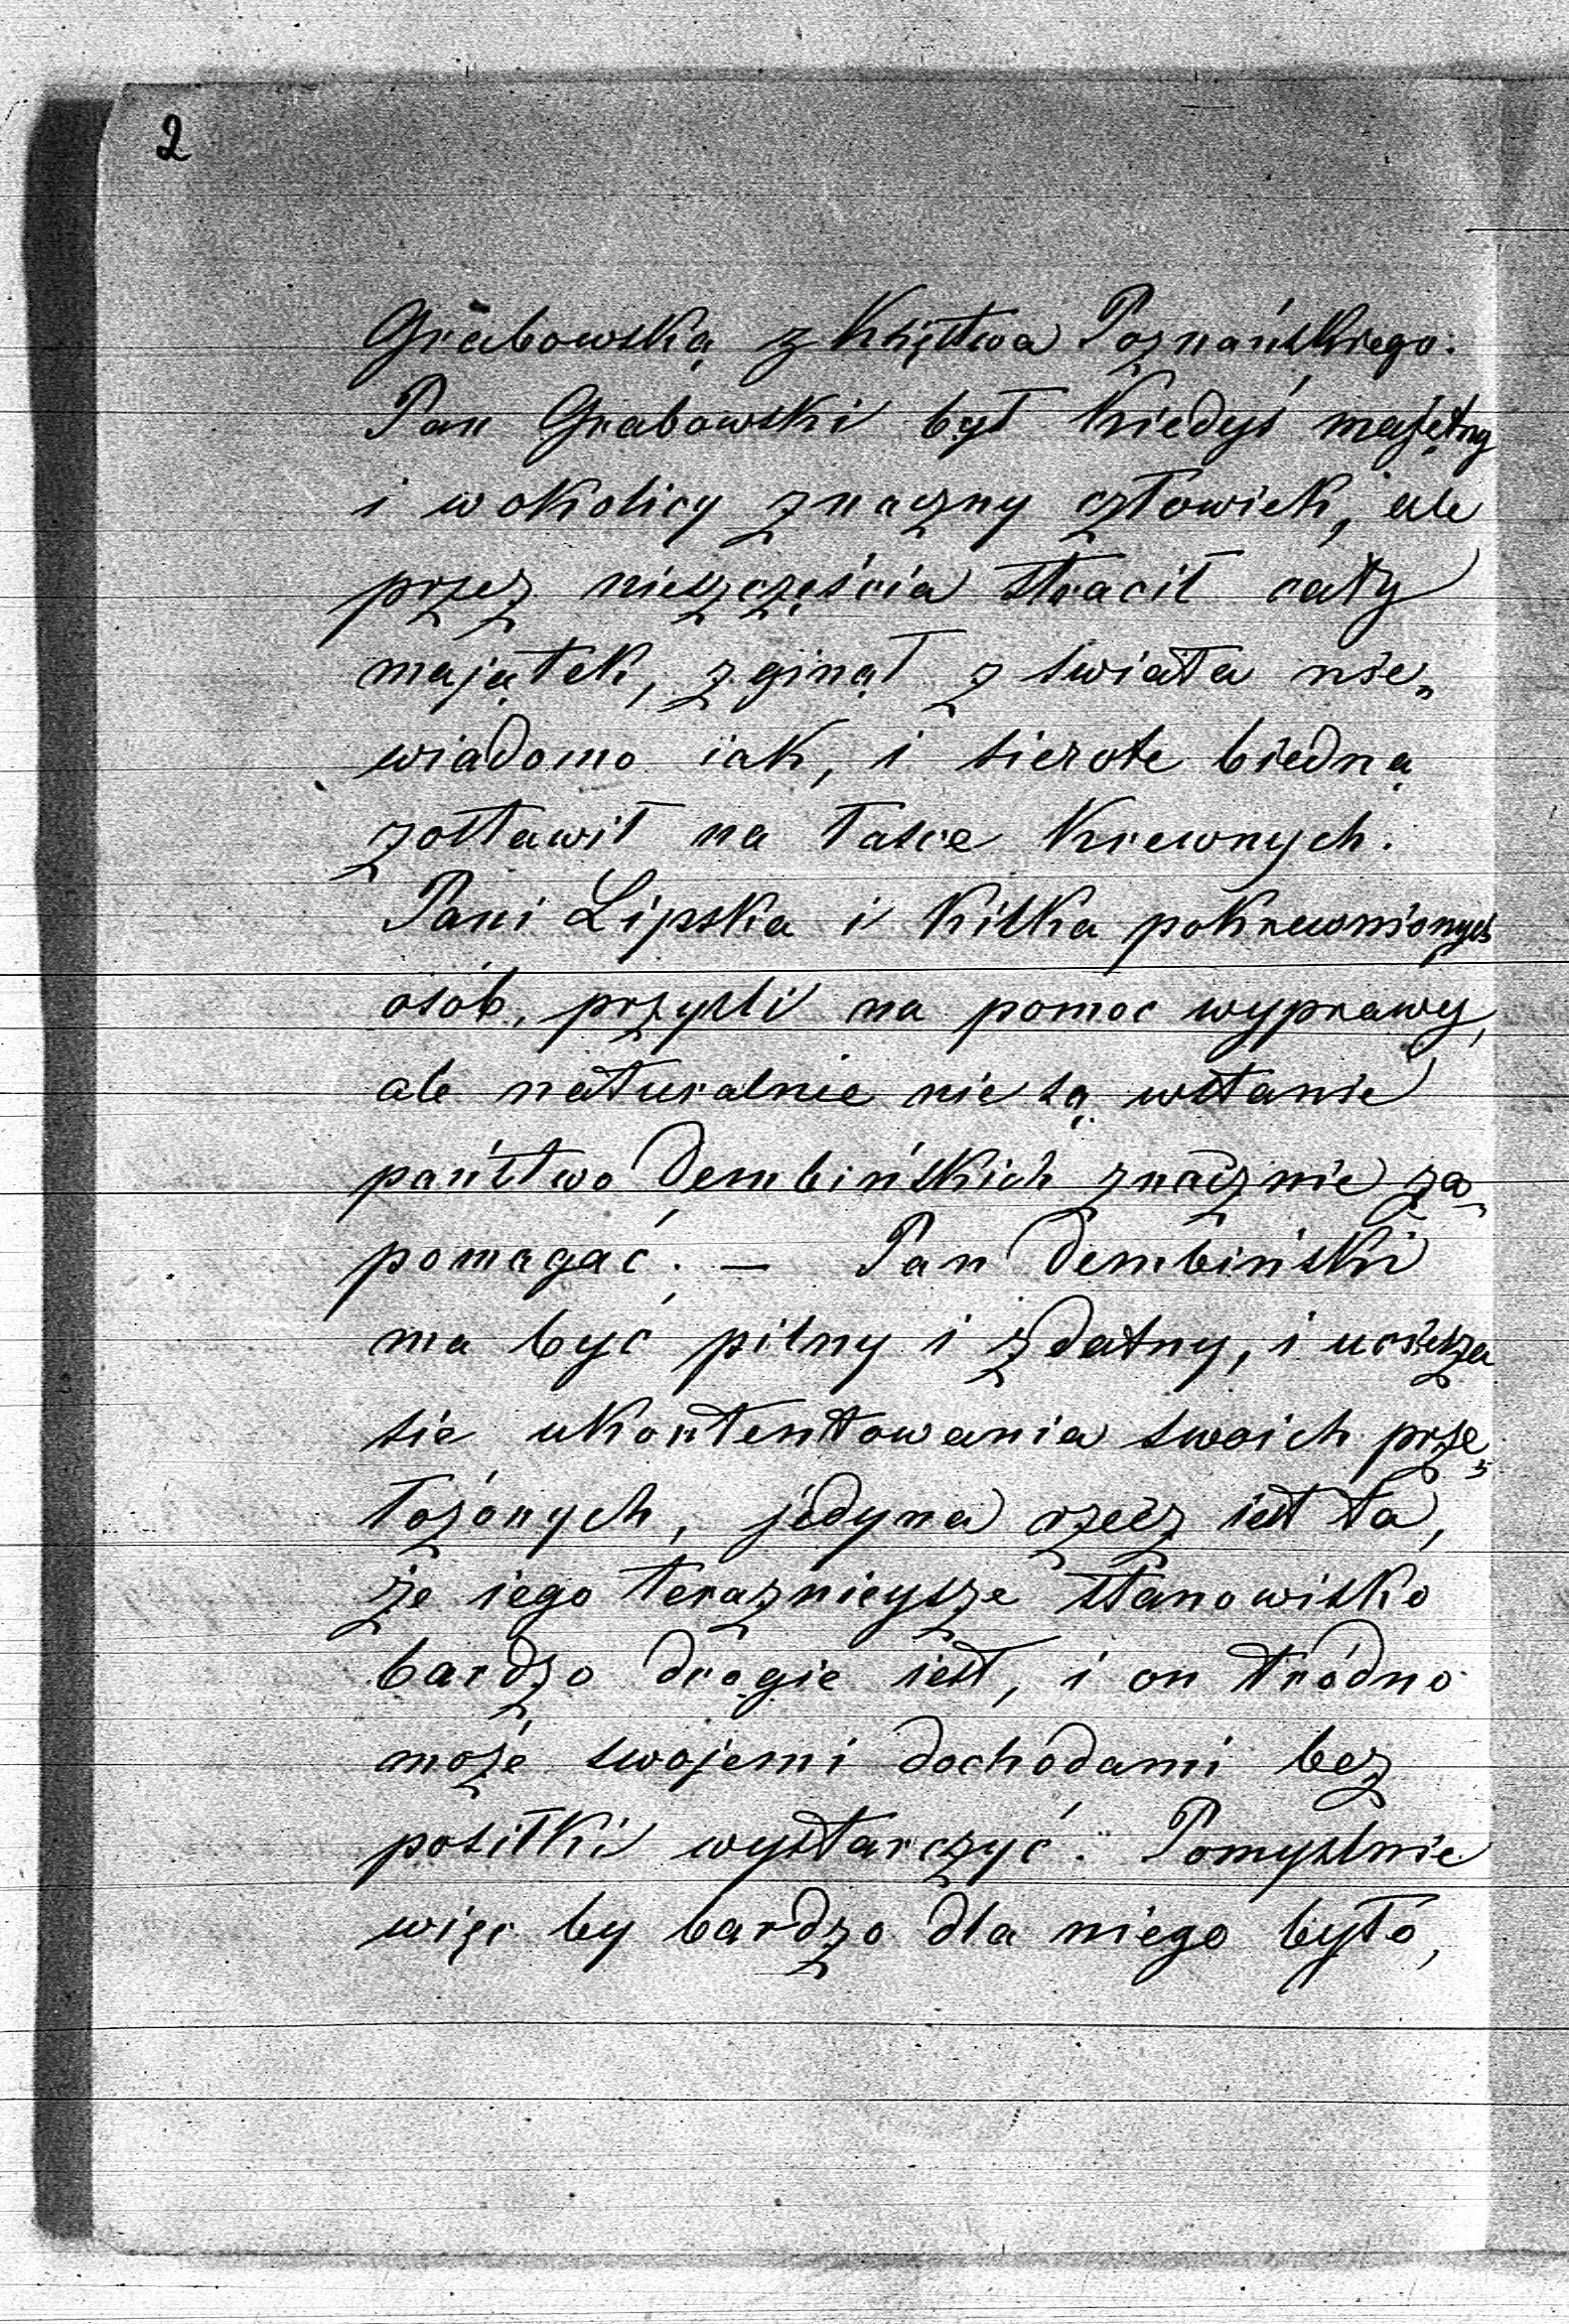 2
Grabowską z Księstwa Poznańskiego.
Pan Grabowski był kiedyś majętny
i w okolicy znaczny człowiek, ale
przez nieszczęścia stracił cały
majątek, zginął z swiata nie„
wiadomo iak, i sierote biedną
zostawił na łasce krewnych.
Pani Lipska i kilka pokrewnionych
osób, przyśli na pomoc wyprawy,
ale naturalnie nie są wstanie
państwo Dembińskich znacznie za„
pomagać. — Pan Dembiński
ma być pilny i zdatny, i uciesza
sie ukontentowania swoich prze„
łożonych, jedyna rzecz iest ta,
że iego teraznieysze stanowisko
bardzo drogie iest, i on tródno
może swojemi dochodami bez
posiłki wystarczyć. Pomyslnie
więc by bardzo dla niego było,